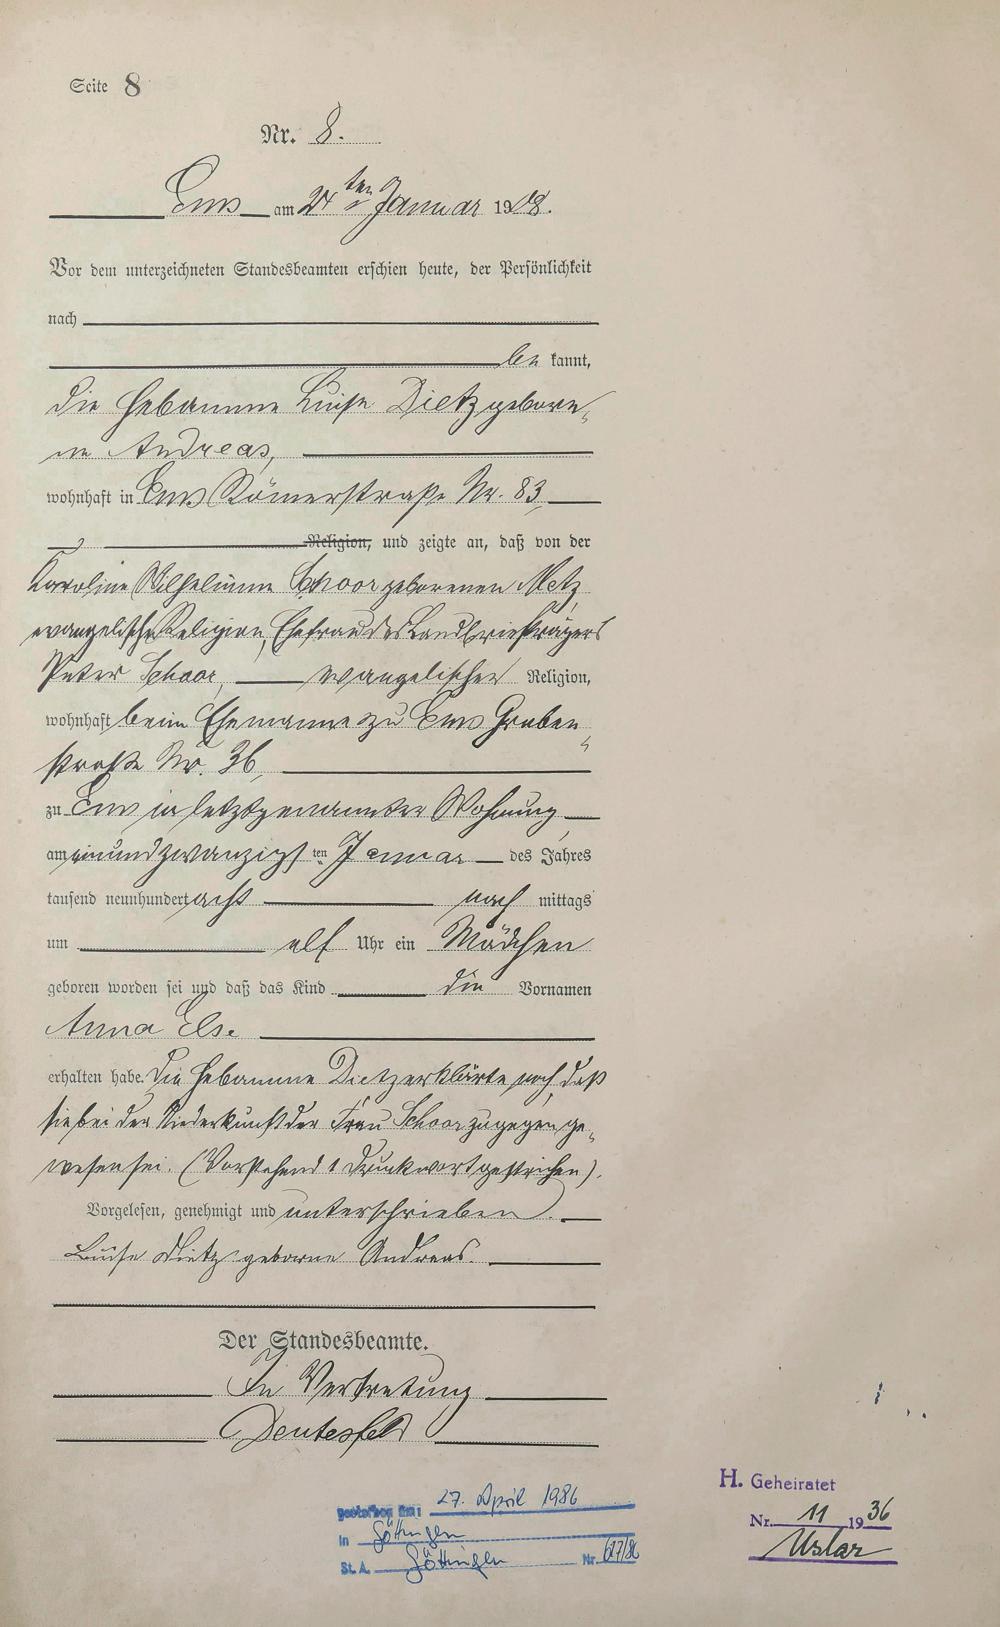 Seite 8
Nr. 8.
Ems am 24ten Januar 1908.
Vor dem unterzeichneten Standesbeamten erschien heute, der Persönlichkeit
nach
be kannt,
die Hebamme Luise Dietz gebore-
ne Andreas,
wohnhaft in Ems Römerstraße Nr. 83,
Religion, und zeigte an, daß von der
Karoline Wilhelmine Schoor geborenen Metz
evangelischer Religion, Ehefrau des Landbriefträgers
Peter Schoor, evangelischer Religion,
wohnhaft beim Ehemanne zu Ems Graben-
straße Nr. 36,
zu Ems in letztgenannter Wohnung
am einundzwanzigsten Januar des Jahres
tausend neunhundert acht nach mittags
um elf Uhr ein Mädchen
geboren worden sei und daß das Kind die Vornamen
Anna Else
erhalten habe. Die Hebamme Dietz erklärte noch, daß
sie bei der Niederkunft der Frau Schoor zugegen ge-
wesen sei. (Vorstehend 1 Druckwort gestrichen).
Vorgelesen, genehmigt und unterschrieben.
Luise Dietz geborne Andreas.
Der Standesbeamte.
In Vertretung
gestorben am: 27. April 1986
in Göttingen
St. A. Göttingen Nr. 617/86
H. Geheiratet
Nr. 11 1936
Uslar